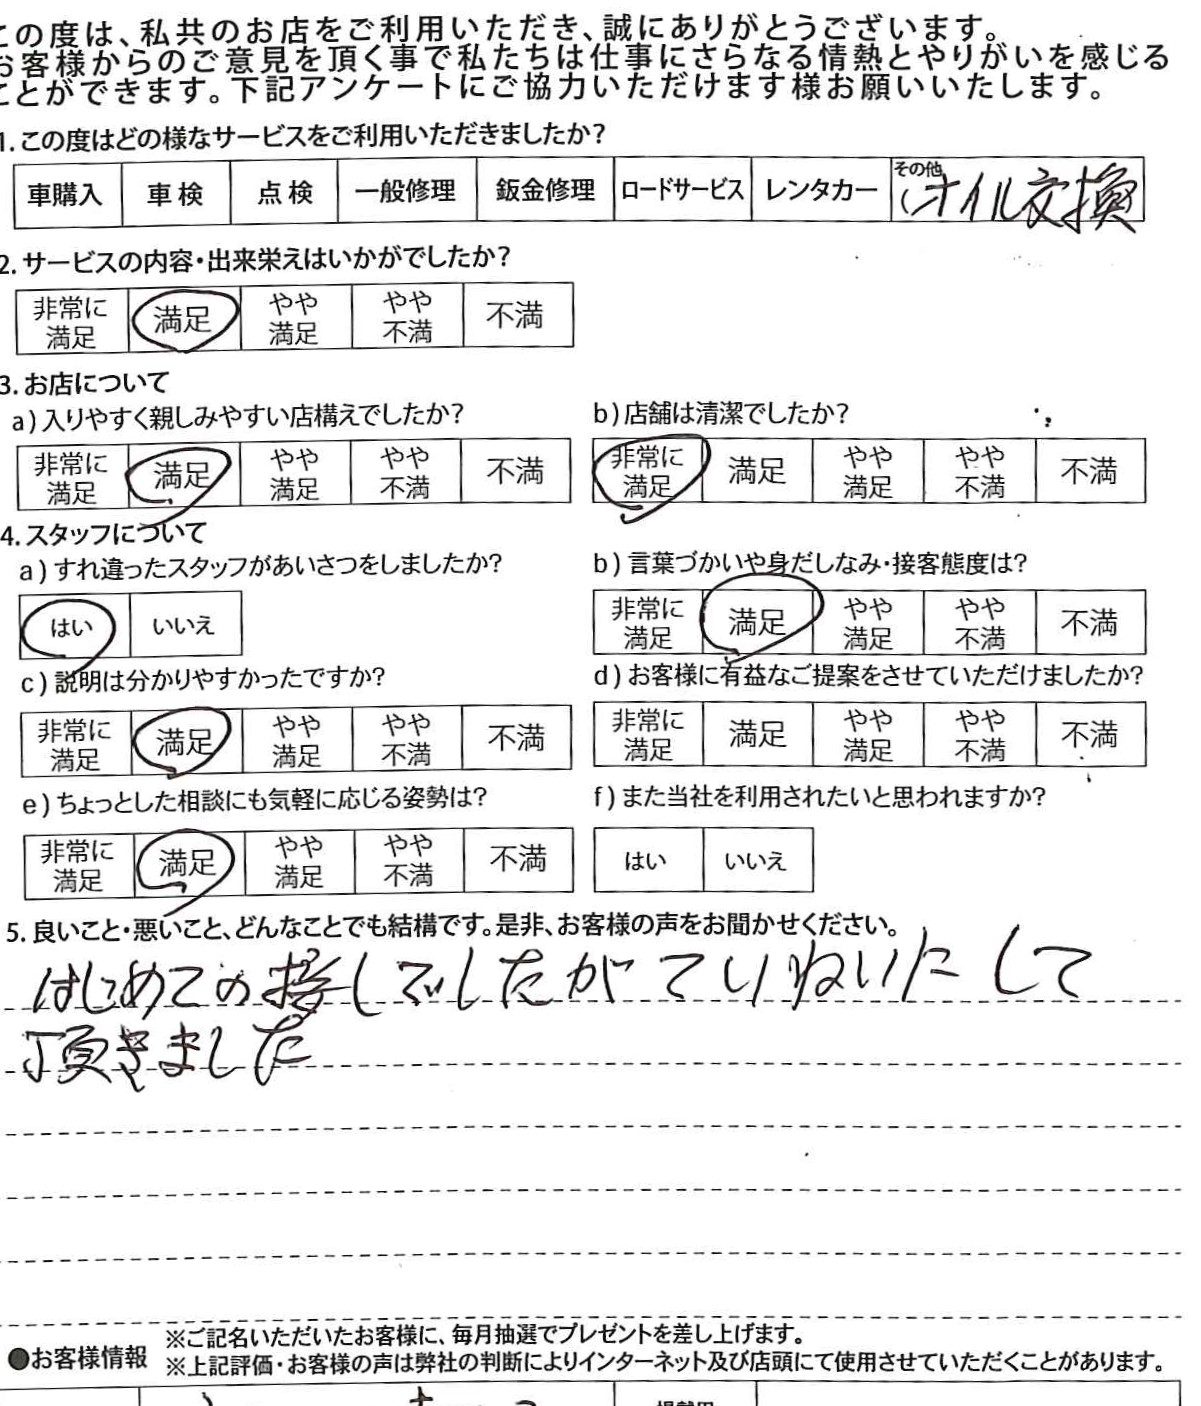 この度は、私共のお店をご利用いただき、誠にありがとうございます。
お客様からのご意見を頂く事で私たちは仕事にさらなる情熱とやりがいを感じる
ことができます。下記アンケートにご協力いただけます様お願いいたします。
1.この度はどの様なサービスをご利用いただきましたか?
車購入 車検 点検 一般修理 鈑金修理 ロードサービス レンタカー その他 オイル交換
2.サービスの内容・出来栄えはいかがでしたか?
非常に満足 満足 やや満足 やや不満 不満
3.お店について
a)入りやすく親しみやすい店構えでしたか? b)店舗は清潔でしたか?
非常に満足 満足 やや満足 やや不満 不満 非常に満足 満足 やや満足 やや不満 不満
4.スタッフについて
a)すれ違ったスタッフがあいさつをしましたか? b)言葉づかいや身だしなみ・接客態度は?
はい いいえ 非常に満足 満足 やや満足 やや不満 不満
c)説明は分かりやすかったですか? d)お客様に有益なご提案をさせていただけましたか?
非常に満足 満足 やや満足 やや不満 不満 非常に満足 満足 やや満足 やや不満 不満
e)ちょっとした相談にも気軽に応じる姿勢は? f)また当社を利用されたいと思われますか?
非常に満足 満足 やや満足 やや不満 不満 はい いいえ
5.良いこと・悪いこと、どんなことでも結構です。是非、お客様の声をお聞かせください。
はじめての接しでしたがていねいにして
頂きました
※ご記名いただいたお客様に、毎月抽選でプレゼントを差し上げます。
●お客様情報 ※上記評価・お客様の声は弊社の判断によりインターネット及び店頭にて使用させていただくことがあります。